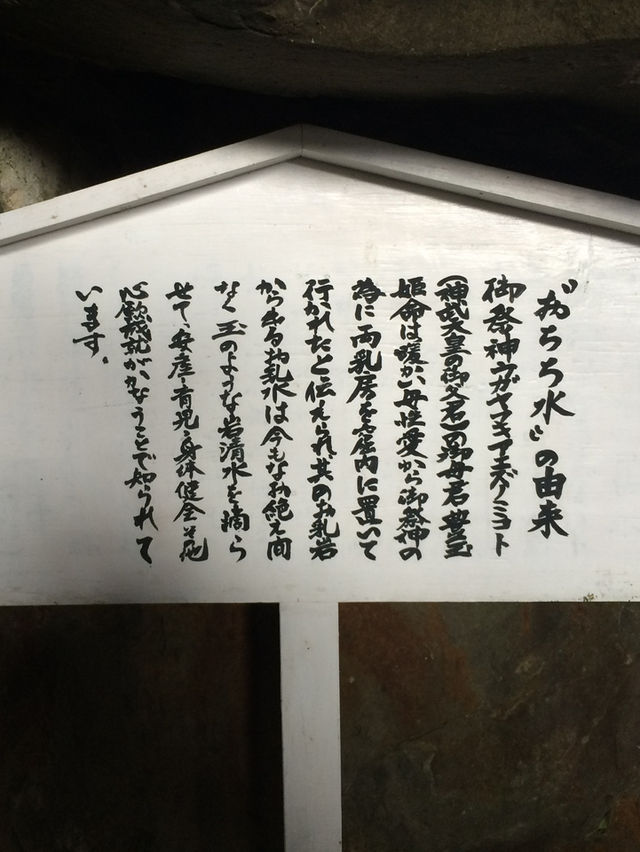 "おちち水"の由来
御祭神ウガヤフキアエズノミコト
(神武天皇の御父君)の御母君 豊玉
姫命は暖かい母性愛から御祭神の
為に両乳房を窟内に置いて
行かれたと伝えられ其のお乳岩
から出るお乳水は今もなお絶え間
なく玉のような岩清水を滴ら
せて、安産・育児・身体健全其他
心願成就がかなうことで知られて
います。